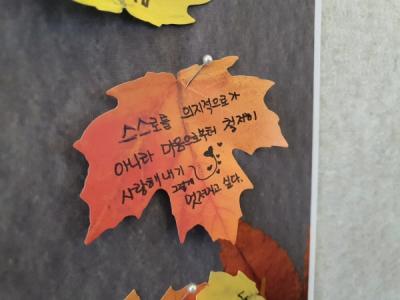 스스로를 의지적으로가
아니라 마음으로부터 철저히
사랑해 내기
그렇게
멋져지고 싶다.